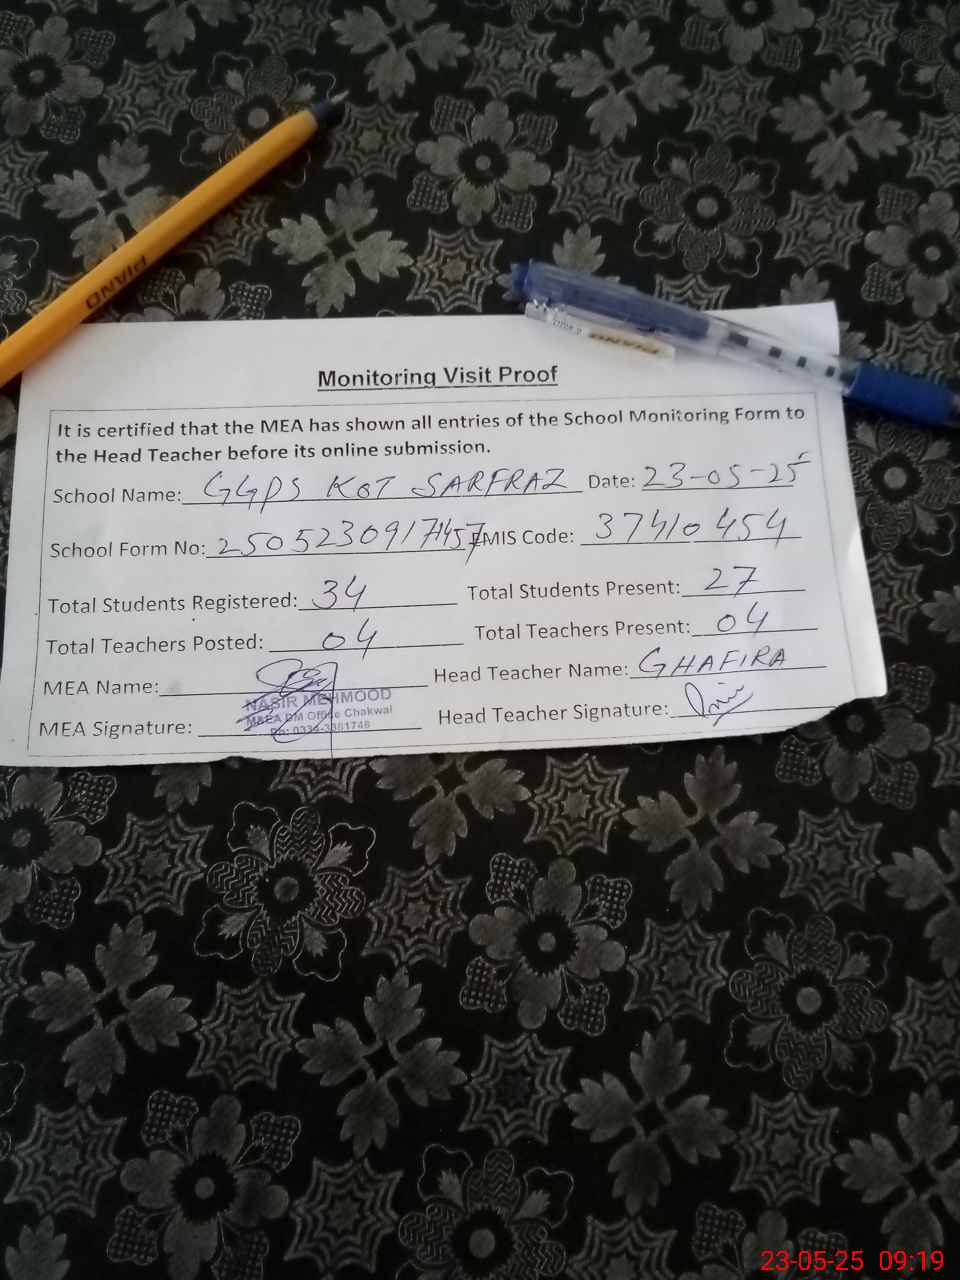 PIANO
PIANO
Monitoring Visit Proof
It is certified that the MEA has shown all entries of the School Monitoring Form to
the Head Teacher before its online submission.
School Name: GGPS KOT SARFRAZ Date: 23-05-25
School Form No: 2505230917457 EMIS Code: 37410454
Total Students Registered: 34 Total Students Present: 27
Total Teachers Posted: 04 Total Teachers Present: 04
MEA Name: Head Teacher Name: GHAFIRA
NASIR MEHMOOD
M&EA DM Office Chakwal
MEA Signature: Head Teacher Signature:
23-05-25 09:19